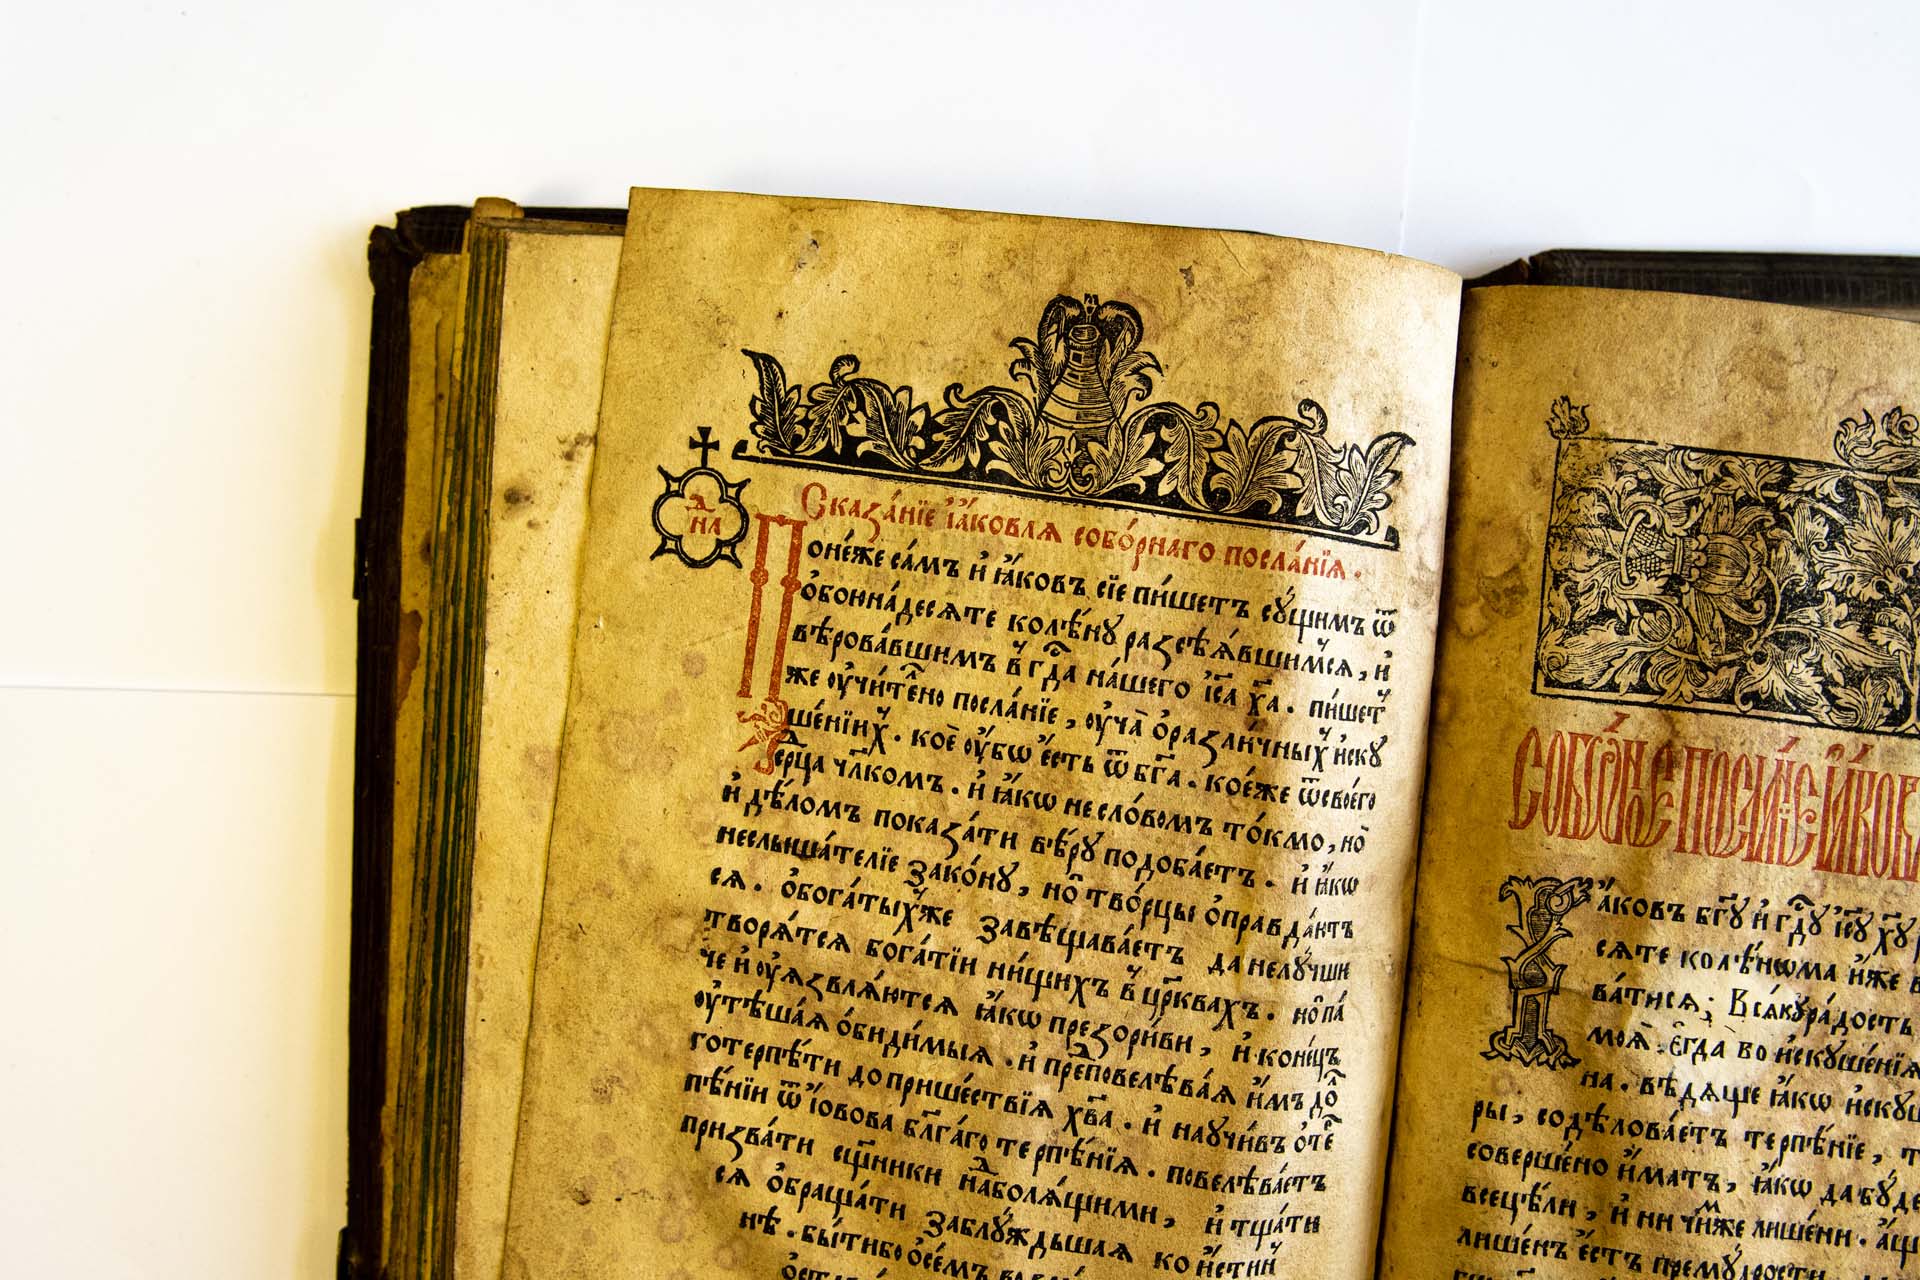 д҃ НЛ
Сказа́нїе і҆а́ковлѧ собо́рнаго посла́нїѧ .
Поне́же са́мъ и҆ і҆а́ковъ сїе пи́шетъ су́щимъ ѿ
ѻ҆боина́десѧте колѣ́ну разсѣѧ́вшимсѧ , и҆
вѣрова́вшимъ в гдⷭ҇а на́шего і҆с҃а хрⷭ҇та . пи́шетꙿ
же ѹ҆чи́телⷭ҇но посла́нїе , ѹ҆ча̀ ѻ҆разли́чныхꙿ и҆ску
ше́нїихꙿ . коѐ ѹ҆́бѡ є҆́сть ѿ бг҃а . кое́же ѿ своегѡ̀
се́рдца чл҃комъ . и҆ ꙗ҆́кѡ несло́вомъ то́кмо , но̀
и҆ дѣ́ломъ показа́ти вѣ́ру подоба́етъ . и҆ ꙗ҆́кѡ
неслы́шателїе зако́ну , но̀ тво́рцы ѻ҆правда́ютъ
сѧ . ѻ҆бога́тыхꙿже завѣщава́етъ да нелу́чши
творѧ́тсѧ бога́тїи ни́щихъ вꙿ цр҃квахъ . но̀ па́
че и҆ ѹ҆ѧзвлѧ́ютсѧ ꙗ҆́кѡ презори́ви , и҆ коне́цъ
ѹ҆тѣша́ѧ ѻ҆би́димыѧ . и҆ препⷣовелѣва́ѧ и҆́мъ до́лⷭ҇
готерпѣ́ти до прише́ствїѧ хрⷭ҇то́ва . и҆ научи́въ ѻ҆ те
пѣ́нїи ѿ і҆́овова бл҃га́го терпѣ́нїѧ . повелѣва́етъ
призва́ти сщ҃нники надⷣболѧ́щими , и҆ тща́ти
сѧ ѻ҆браща́ти заблу́ждьшаѧ ко и҆́стинꙿ
нѣ . бы́ти бо ѻ҆се́мъ
собо́рное посла́нїе і҆а́ков
І҆а́ковъ бг҃у и҆ гдⷭ҇у і҆с҃у хрⷭ҇ту
сѧте колѣ́нѡма и҆́же в
ва́тисѧ ; Всѧ́ку ра́дость
моѧ̀ . є҆гда̀ во и҆скуше́нїѧ
на . вѣ́дѧще ꙗ҆́кѡ и҆ску
ры , содѣлова́етъ терпѣ́нїе , т
соверше́но и҆́мать , ꙗ҆́кѡ да бу́де
всецѣ́ли , и҆ ни чи́мже лише́ни . а҆́щ
лише́нъ є҆́сть прему́дрости